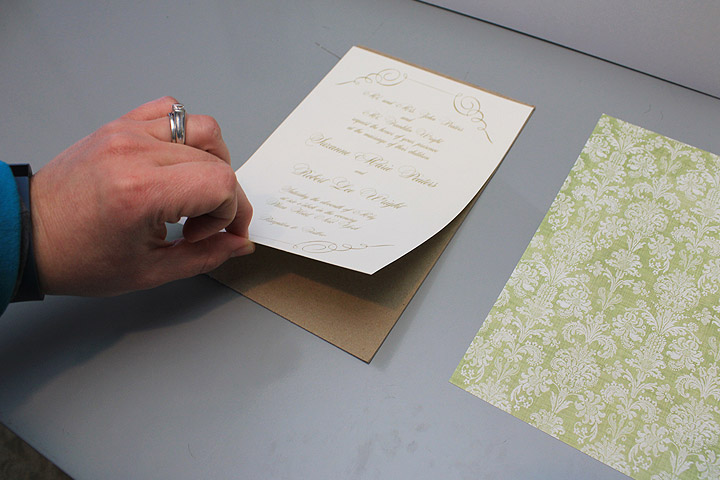 Mr. and Mrs. John Peters
and
Mrs. Wright
request the honor of your presence
at the marriage of their children
Suzanne Marie Peters
and
Robert Lee Wright
Saturday the of May
at in the evening
Hotel New York
Reception to